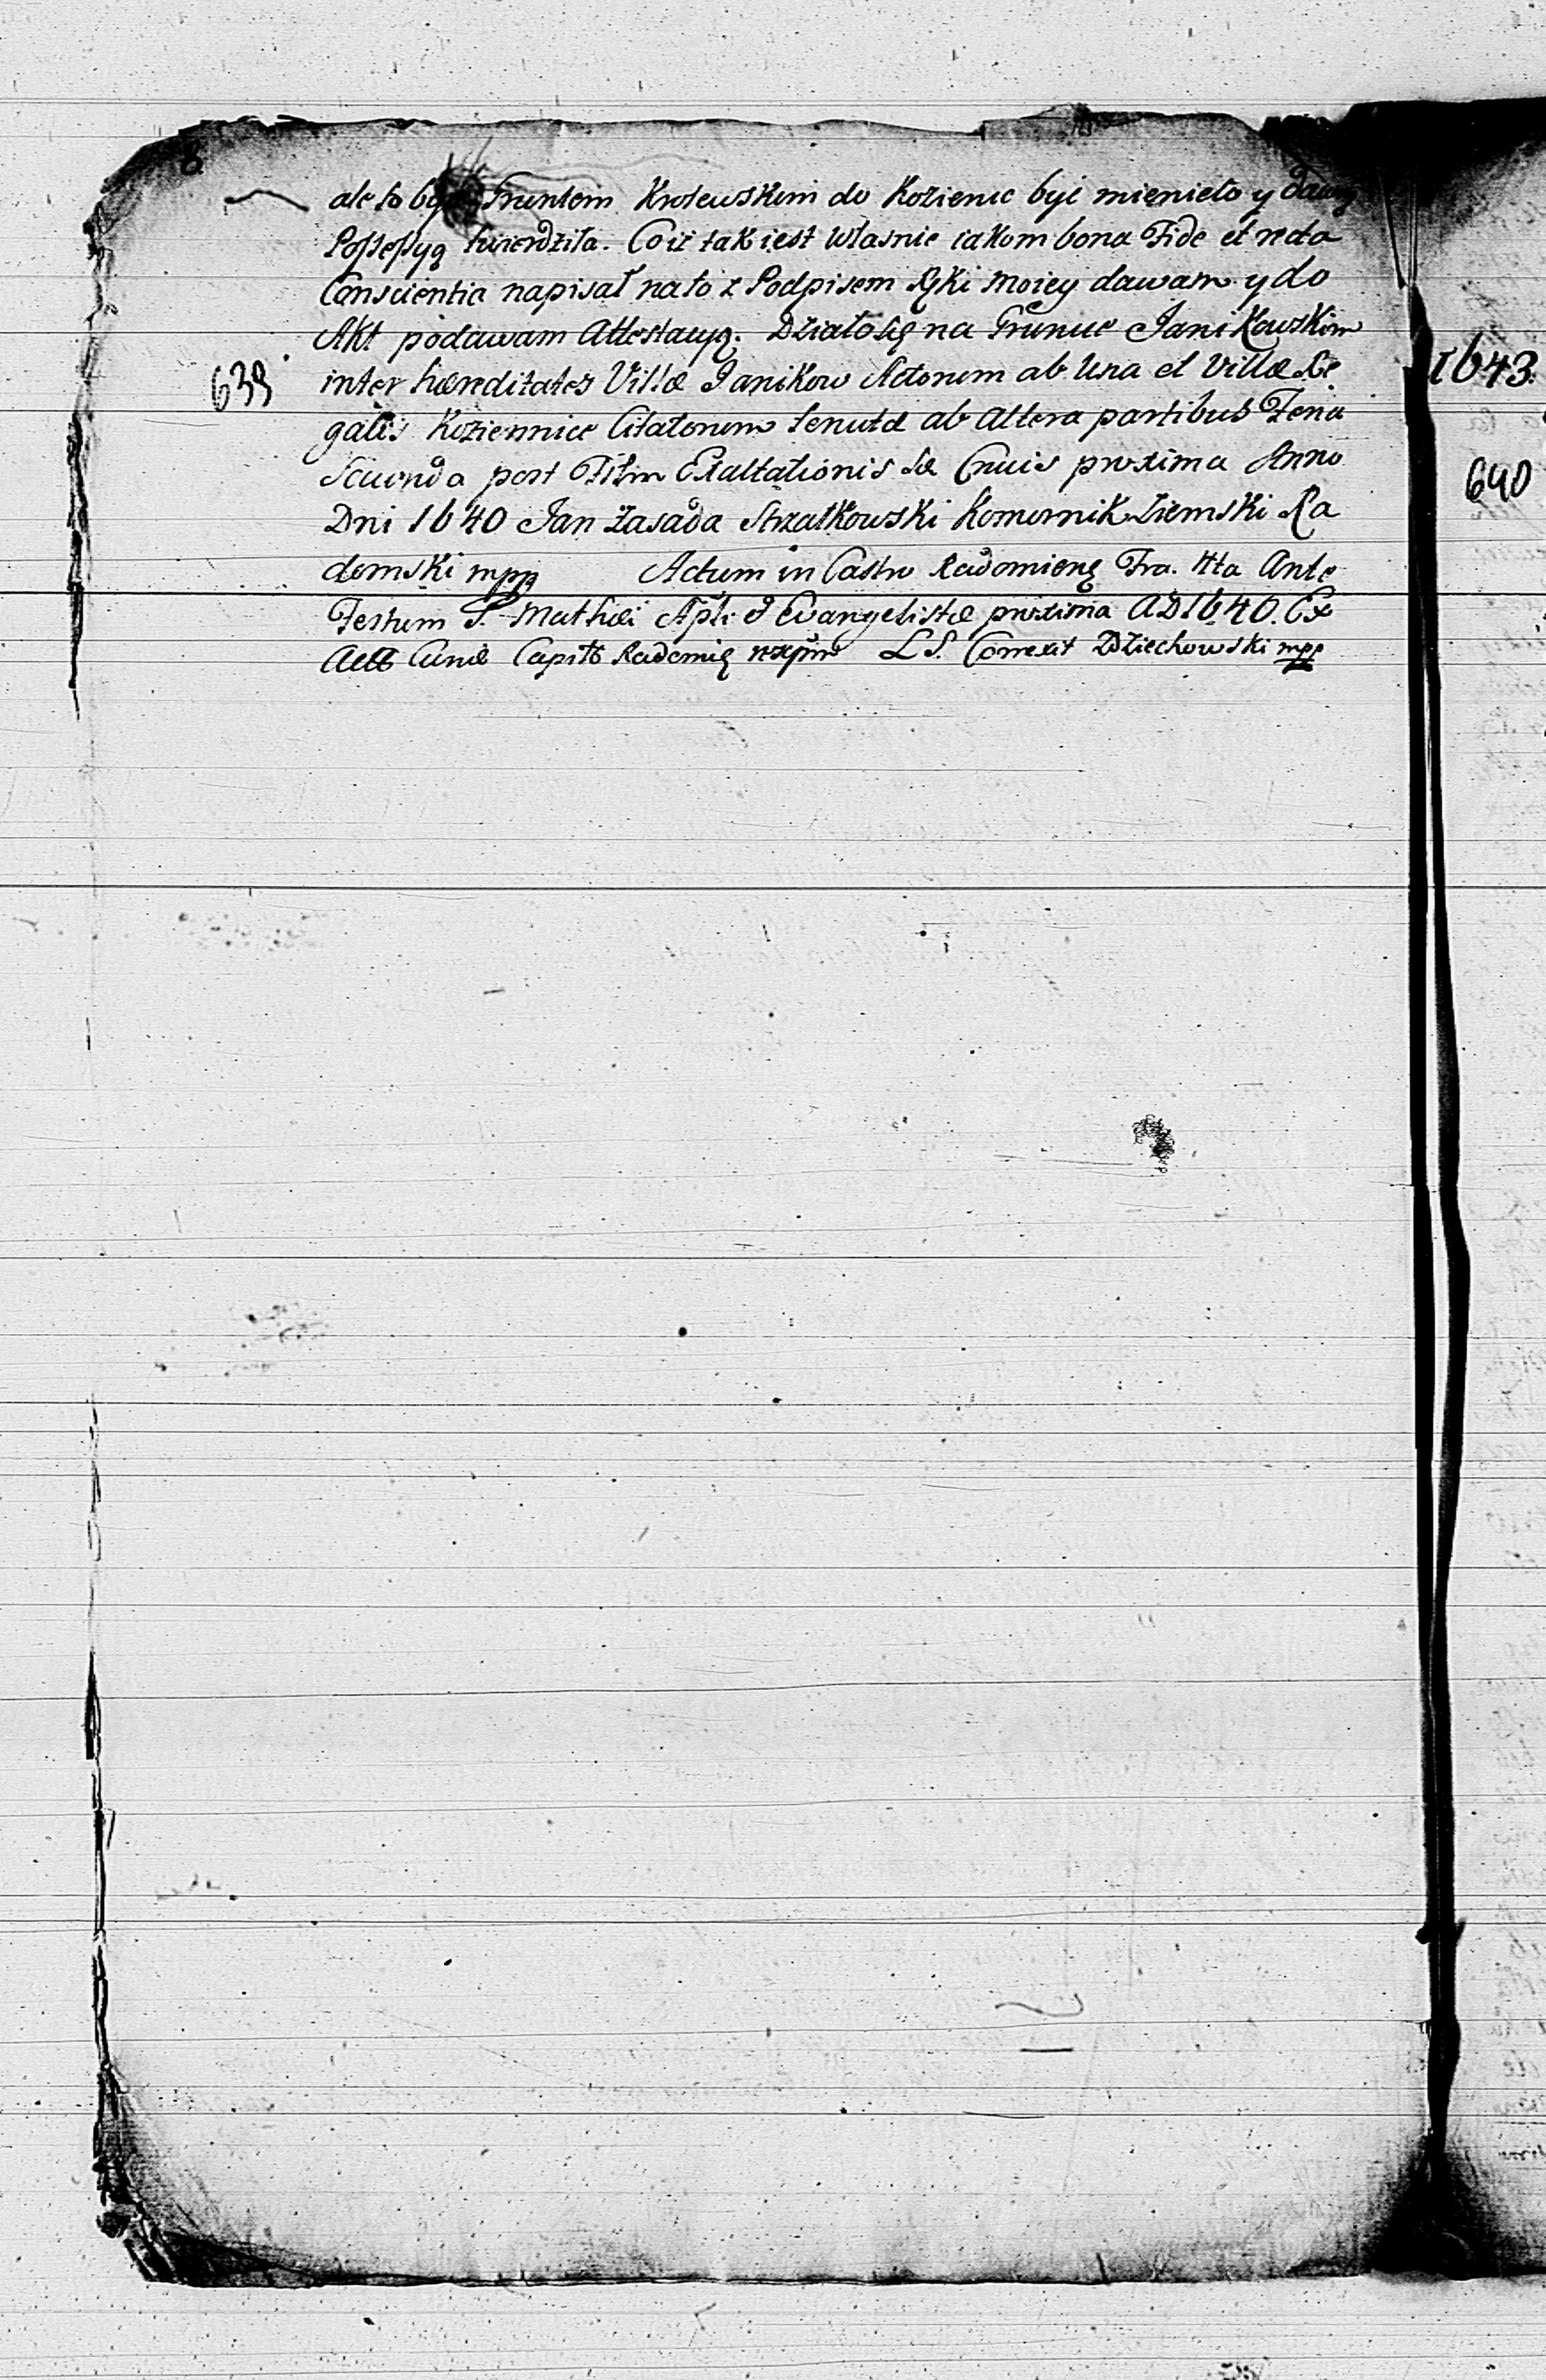 8
ale to być Gruntem Krolewskim do Kozienic być mienieło y dawną
Possessyą twierdziła. Co iż tak iest własnie iakom bona Fide et recta
Conscientia napisał na to z Podpisem Ręki moiey dawam y do
Akt podawam Attestacyą. Działo się na Gruncie Janikowskim
639
inter hæreditates Villæ Janikow Actorum ab Una et Villæ Re
galis Koziennice Citatorum tenutæ ab altera partibus Feria
Secunda post Ftum Exaltationis Sæ Crucis proxima Anno
Dni 1640 Jan Zasada Strzałkowski Komornik Ziemski Ra
domski mpp Actum in Castro Radomien Fra. 4ta Ante
Festum S. Mathæi Apli & Evangelistæ proxima AD 1640. Ex
Actis Curiæ Capitis Radomien LS. Correxit Dziechowski mpp
1643.
640